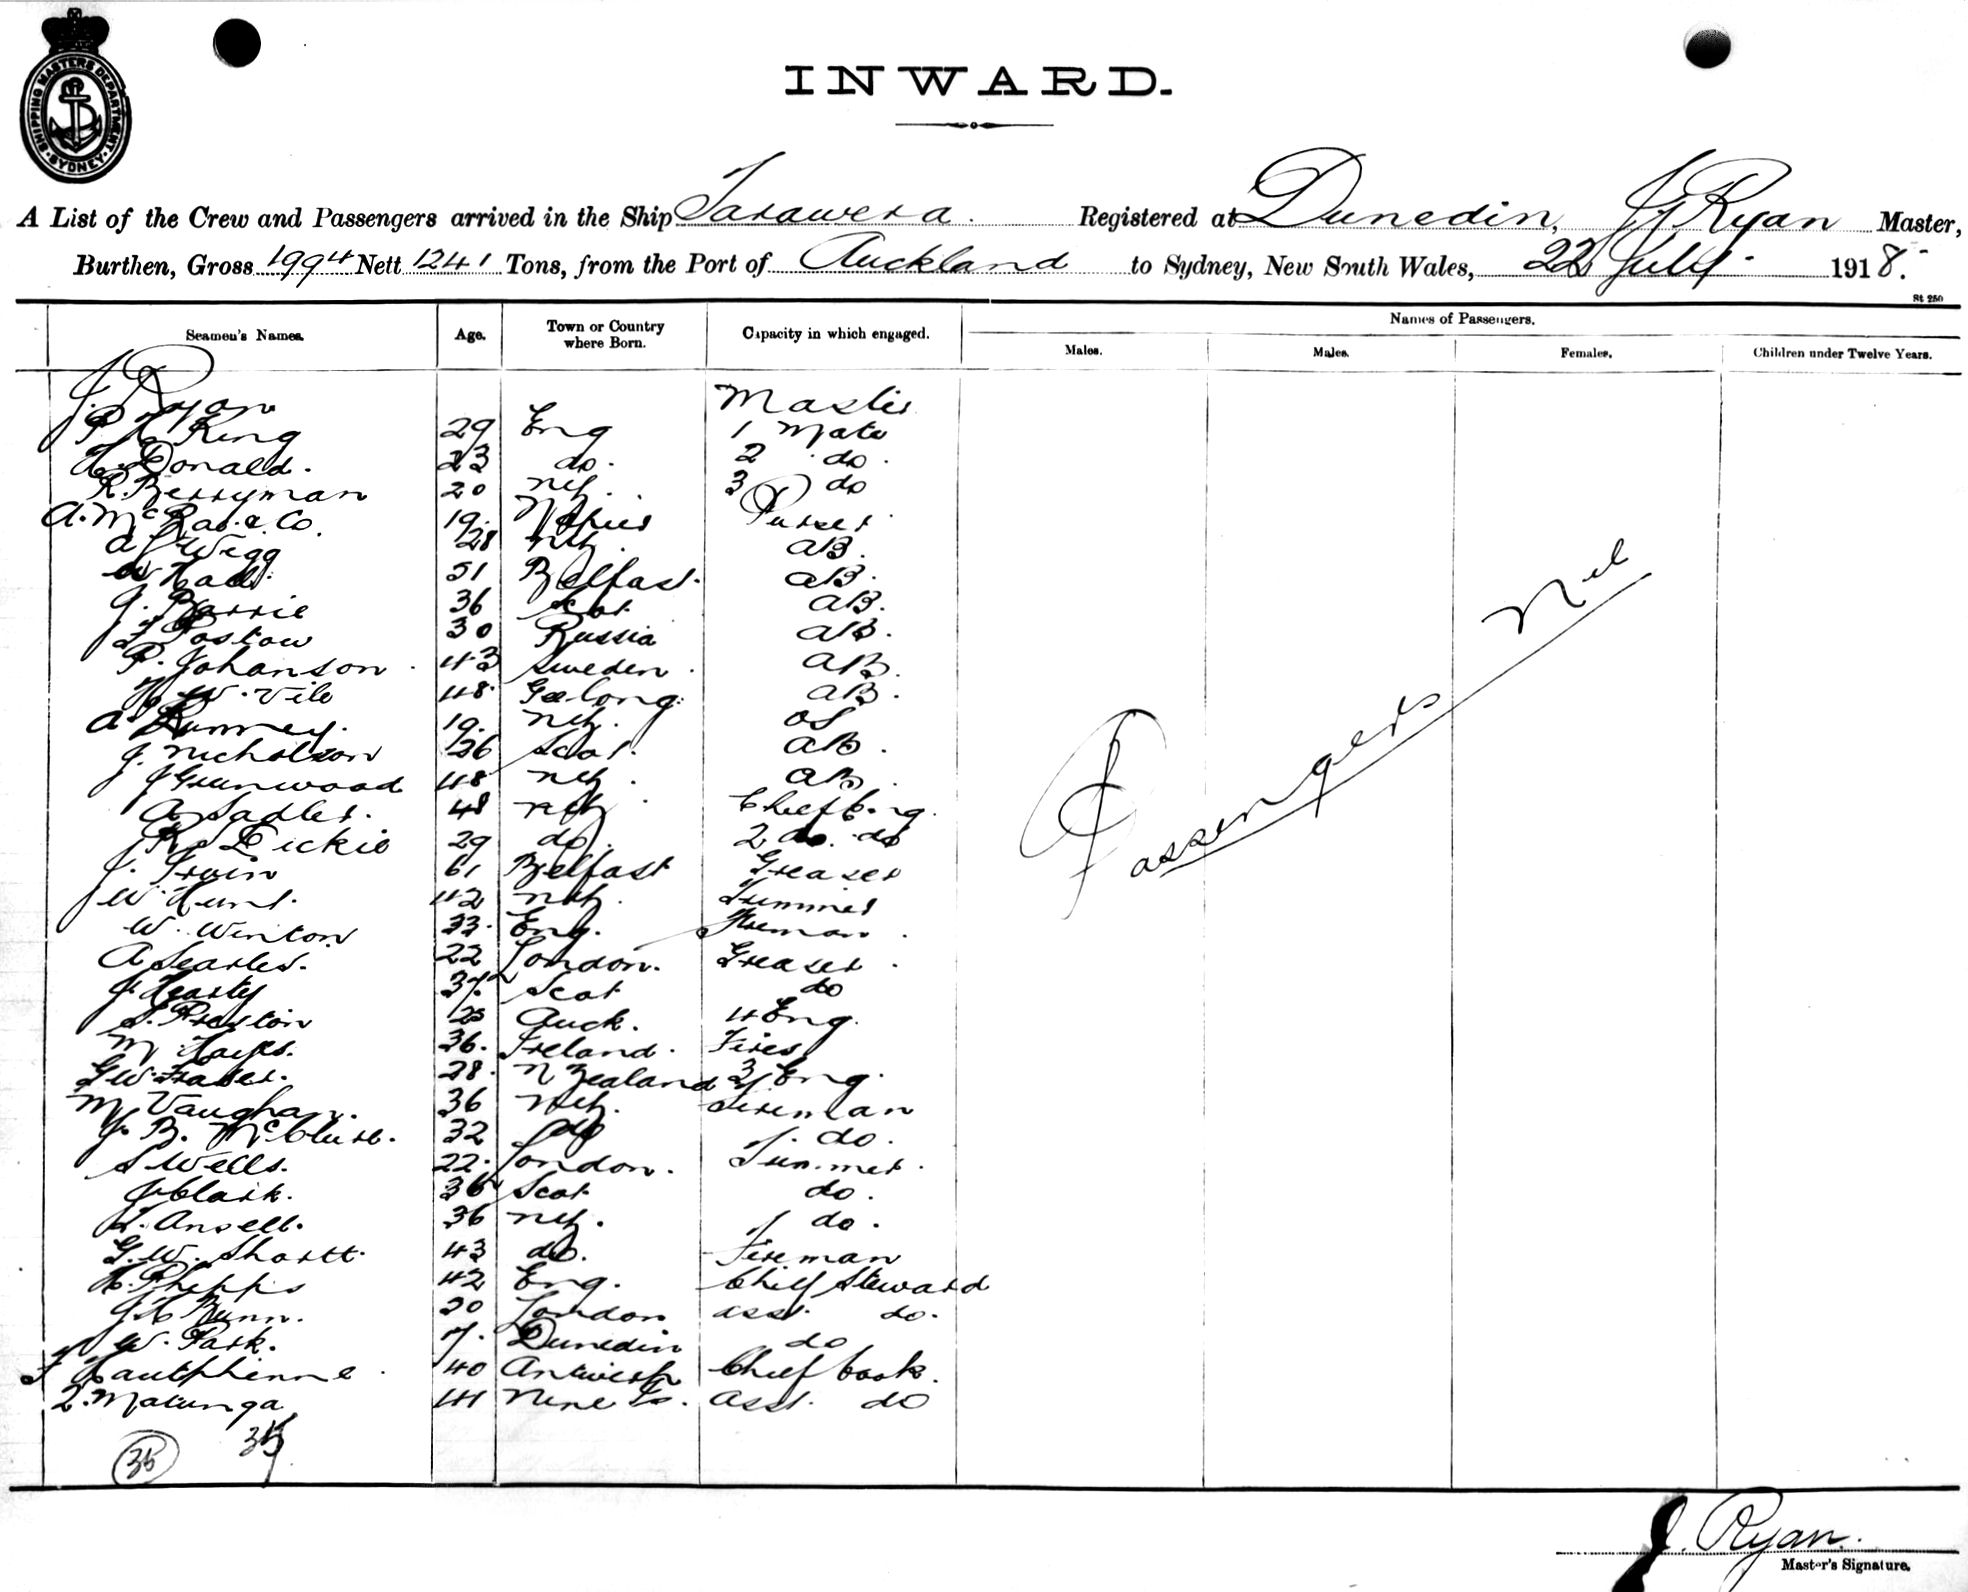 SHIPPING MASTERS DEPARTMENT
SYDNEY
INWARD.
A List of the Crew and Passengers arrived in the Ship Tarawera. Registered at Dunedin, J Ryan Master,
Burthen, Gross 1994 Nett 1241 Tons, from the Port of Auckland to Sydney, New South Wales, 22 July 1918.
St 250
Seamen's Names. Age. Town or Country where Born. Capacity in which engaged. Names of Passengers.
Males. Males. Females. Children under Twelve Years.
J. Ryan Master
King 29 Eng 1 Mate
Donald. 23 do. 2 do.
R. Berryman 20 3 do
A. McRae & Co. 19. Napier Purser
A Wigg 28 AB.
W Hall. 51 Belfast. AB.
J. Barrie 36 Scot AB.
Postow 30 Russia AB.
P. Johanson 43 Sweden. AB.
W. Vile 48. Geelong. AB.
A. 19. OS
J. Nicholson 26 Scot. AB.
J Greenwood 48 AB.
A Sadler. 48 Chief Eng.
R Dickie 29 do. 2 do. do
J. Irvin 61 Belfast Greaser
W. Hunt. 42 Trimmer
W. Winton 33. Eng. Fireman.
A Searles. 22 London. Greaser.
J. Hearty 37 Scot do
S. Preston 25 Auck. 4 Eng.
M Hayes. 36. Ireland. Fires
G W. Fraser. 28. N Zealand 3 Eng.
M Vaughan. 36 Fireman
J. B. McClure. 32 do do.
S Wells. 22. London. Trimmer.
J Clark. 36 Scot do.
Ansell. 36 do.
G. W. Shortt. 43 do. Fireman
H. Phepps 42 Eng. Chief Steward
J H Bunn. 20 London asst. do.
W. Park. Dunedin do
F Hautphenne. 40 Antwerp Chief Cook.
2. Matunga 41 asst. do
35 35
Passengers Nil
J. Ryan.
Master's Signature.